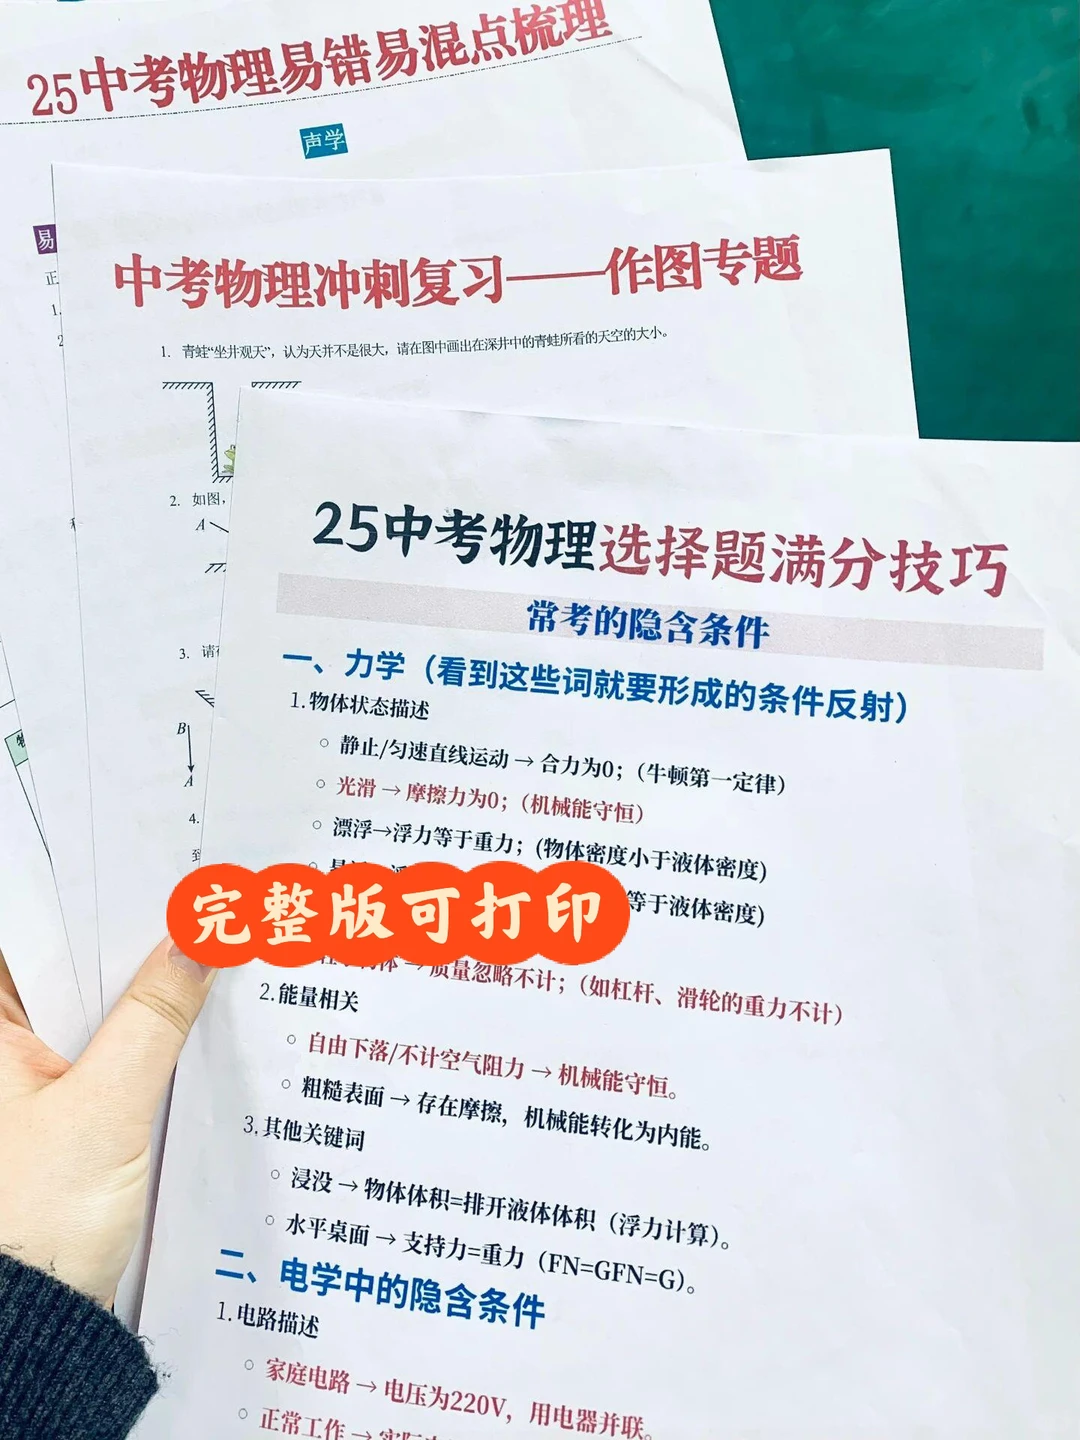 25中考物理易错易混点梳理
声学
易
正
1.
2
中考物理冲刺复习——作图专题
1. 青蛙“坐井观天”，认为天并不是很大，请在图中画出在深井中的青蛙所看的天空的大小。
2. 如图，
A
3. 请在
B
A
4.
到
25中考物理选择题满分技巧
常考的隐含条件
一、力学（看到这些词就要形成的条件反射）
1.物体状态描述
○ 静止/匀速直线运动 → 合力为0；（牛顿第一定律）
○ 光滑 → 摩擦力为0；（机械能守恒）
○ 漂浮→浮力等于重力；(物体密度小于液体密度)
等于液体密度)
完整版可打印
→ 质量忽略不计；（如杠杆、滑轮的重力不计）
2.能量相关
○ 自由下落/不计空气阻力 → 机械能守恒。
○ 粗糙表面 → 存在摩擦，机械能转化为内能。
3.其他关键词
○ 浸没 → 物体体积=排开液体体积（浮力计算）。
○ 水平桌面 → 支持力=重力（FN=GFN=G）。
二、电学中的隐含条件
1.电路描述
○ 家庭电路 → 电压为220V，用电器并联。
○ 正常工作 → 实际